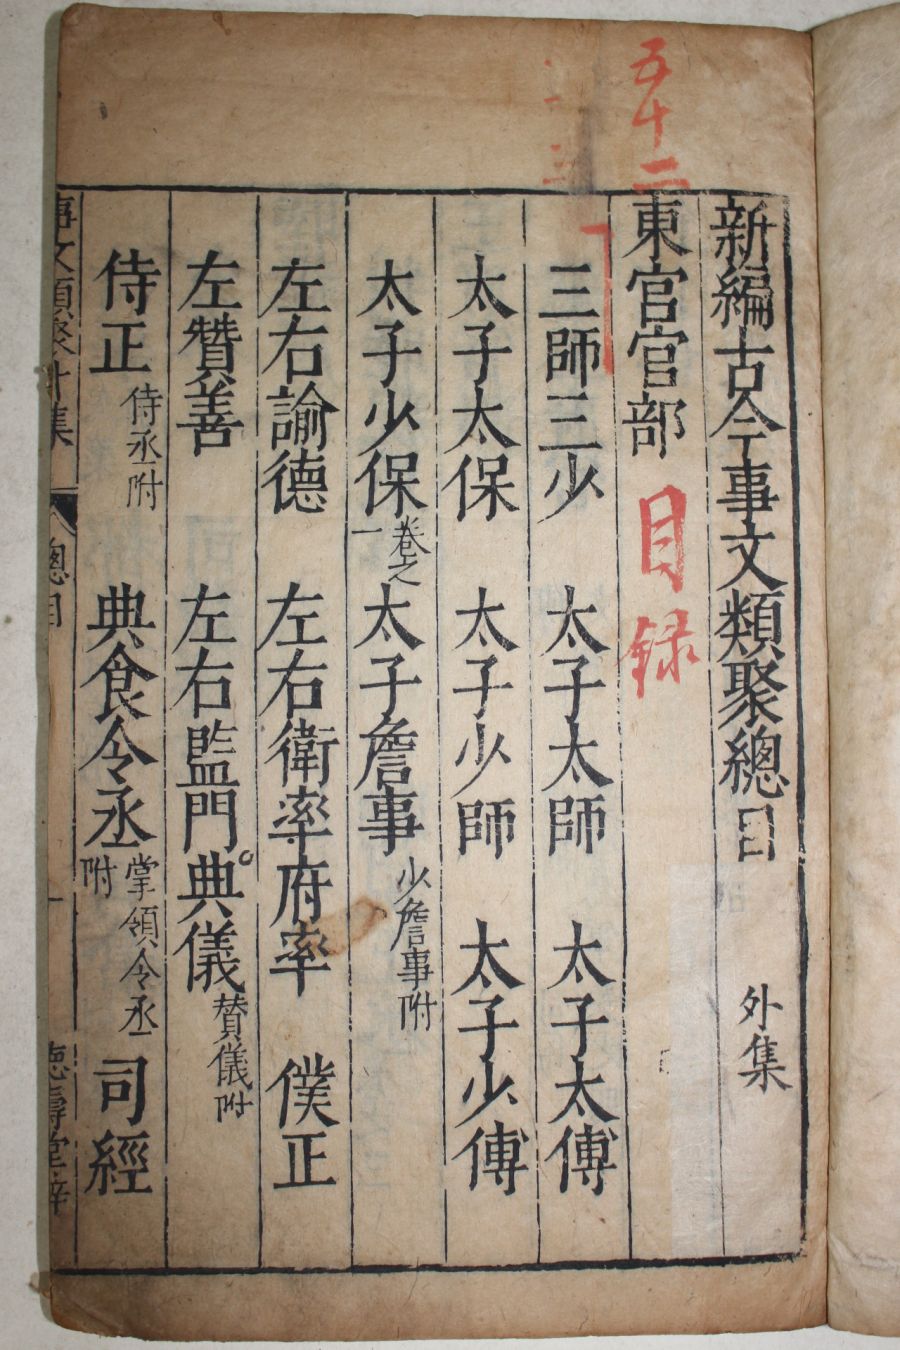 新編古今事文類聚總目 外集
五十二
東宮官部 目録
三師三少 太子太師 太子太傅
太子太保 太子少師 太子少傅
太子少保卷之一 太子詹事少詹事附
左右諭德 左右衛率府率 僕正
左贊善 左右監門典儀賛儀附
侍正侍丞附 典食令丞掌領令丞附 司經
事文類聚外集 總目 德壽堂梓